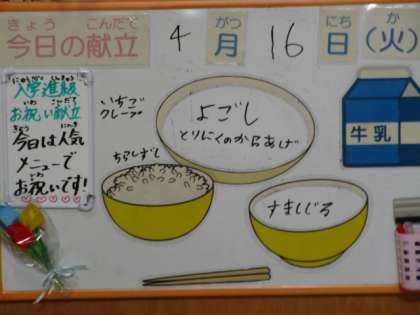 きょう こんだて
今日の献立
がつ にち か
4月16日(火)
にゅうがくしんきゅう
入学進級
いわ こんだて
お祝い献立
きょう にんき
今日は人気
メニューで
いわ
お祝いです!
いちご
クレープ
よごし
とりにくのからあげ
牛乳
ちらしずし
すましじる